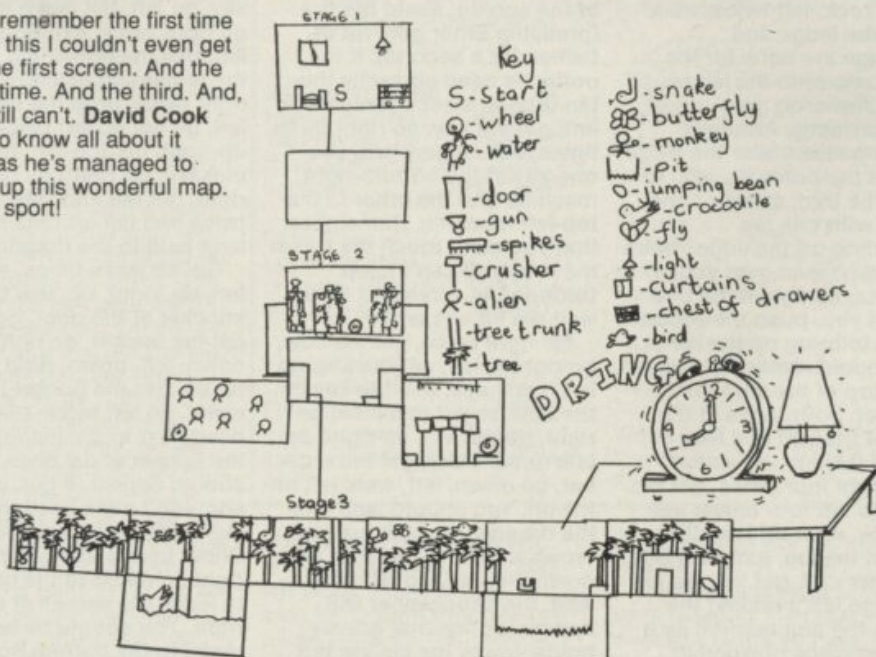 remember the first time
this I couldn't even get
e first screen. And the
time. And the third. And,
till can't. David Cook
o know all about it
as he's managed to
up this wonderful map.
sport!
STAGE 1
S
Key
S-Start
-wheel
-water
-door
-gun
-spikes
-crusher
-alien
-tree trunk
-tree
-snake
-butterfly
-monkey
-pit
-jumping bean
-crocodile
-fly
-light
-curtains
-chest of drawers
-bird
STAGE 2
DRING
12
3
6
9
Stage3